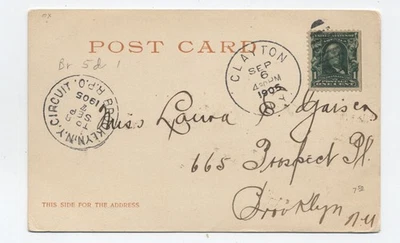 POST CARD
Br 5d 1
CLAYTON
SEP
6
430PM
1905
N.Y.
1
BROOKLYN, N.Y. CIRCUIT. R.P.O.
SEP
7
1905
Miss Laura C.
665 Prospect Pl.
Brooklyn
N.Y.
THIS SIDE FOR THE ADDRESS.